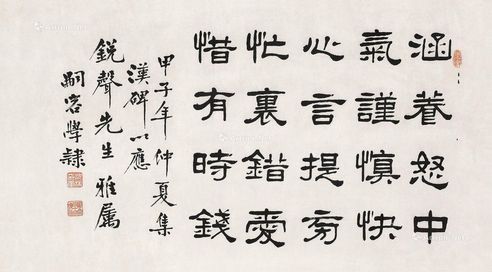 涵養怒中
氣謹慎快
心言提防
忙裏錯愛
惜有時錢
甲子年仲夏集
漢碑以應
銳聲先生 雅屬
嗣容學隸